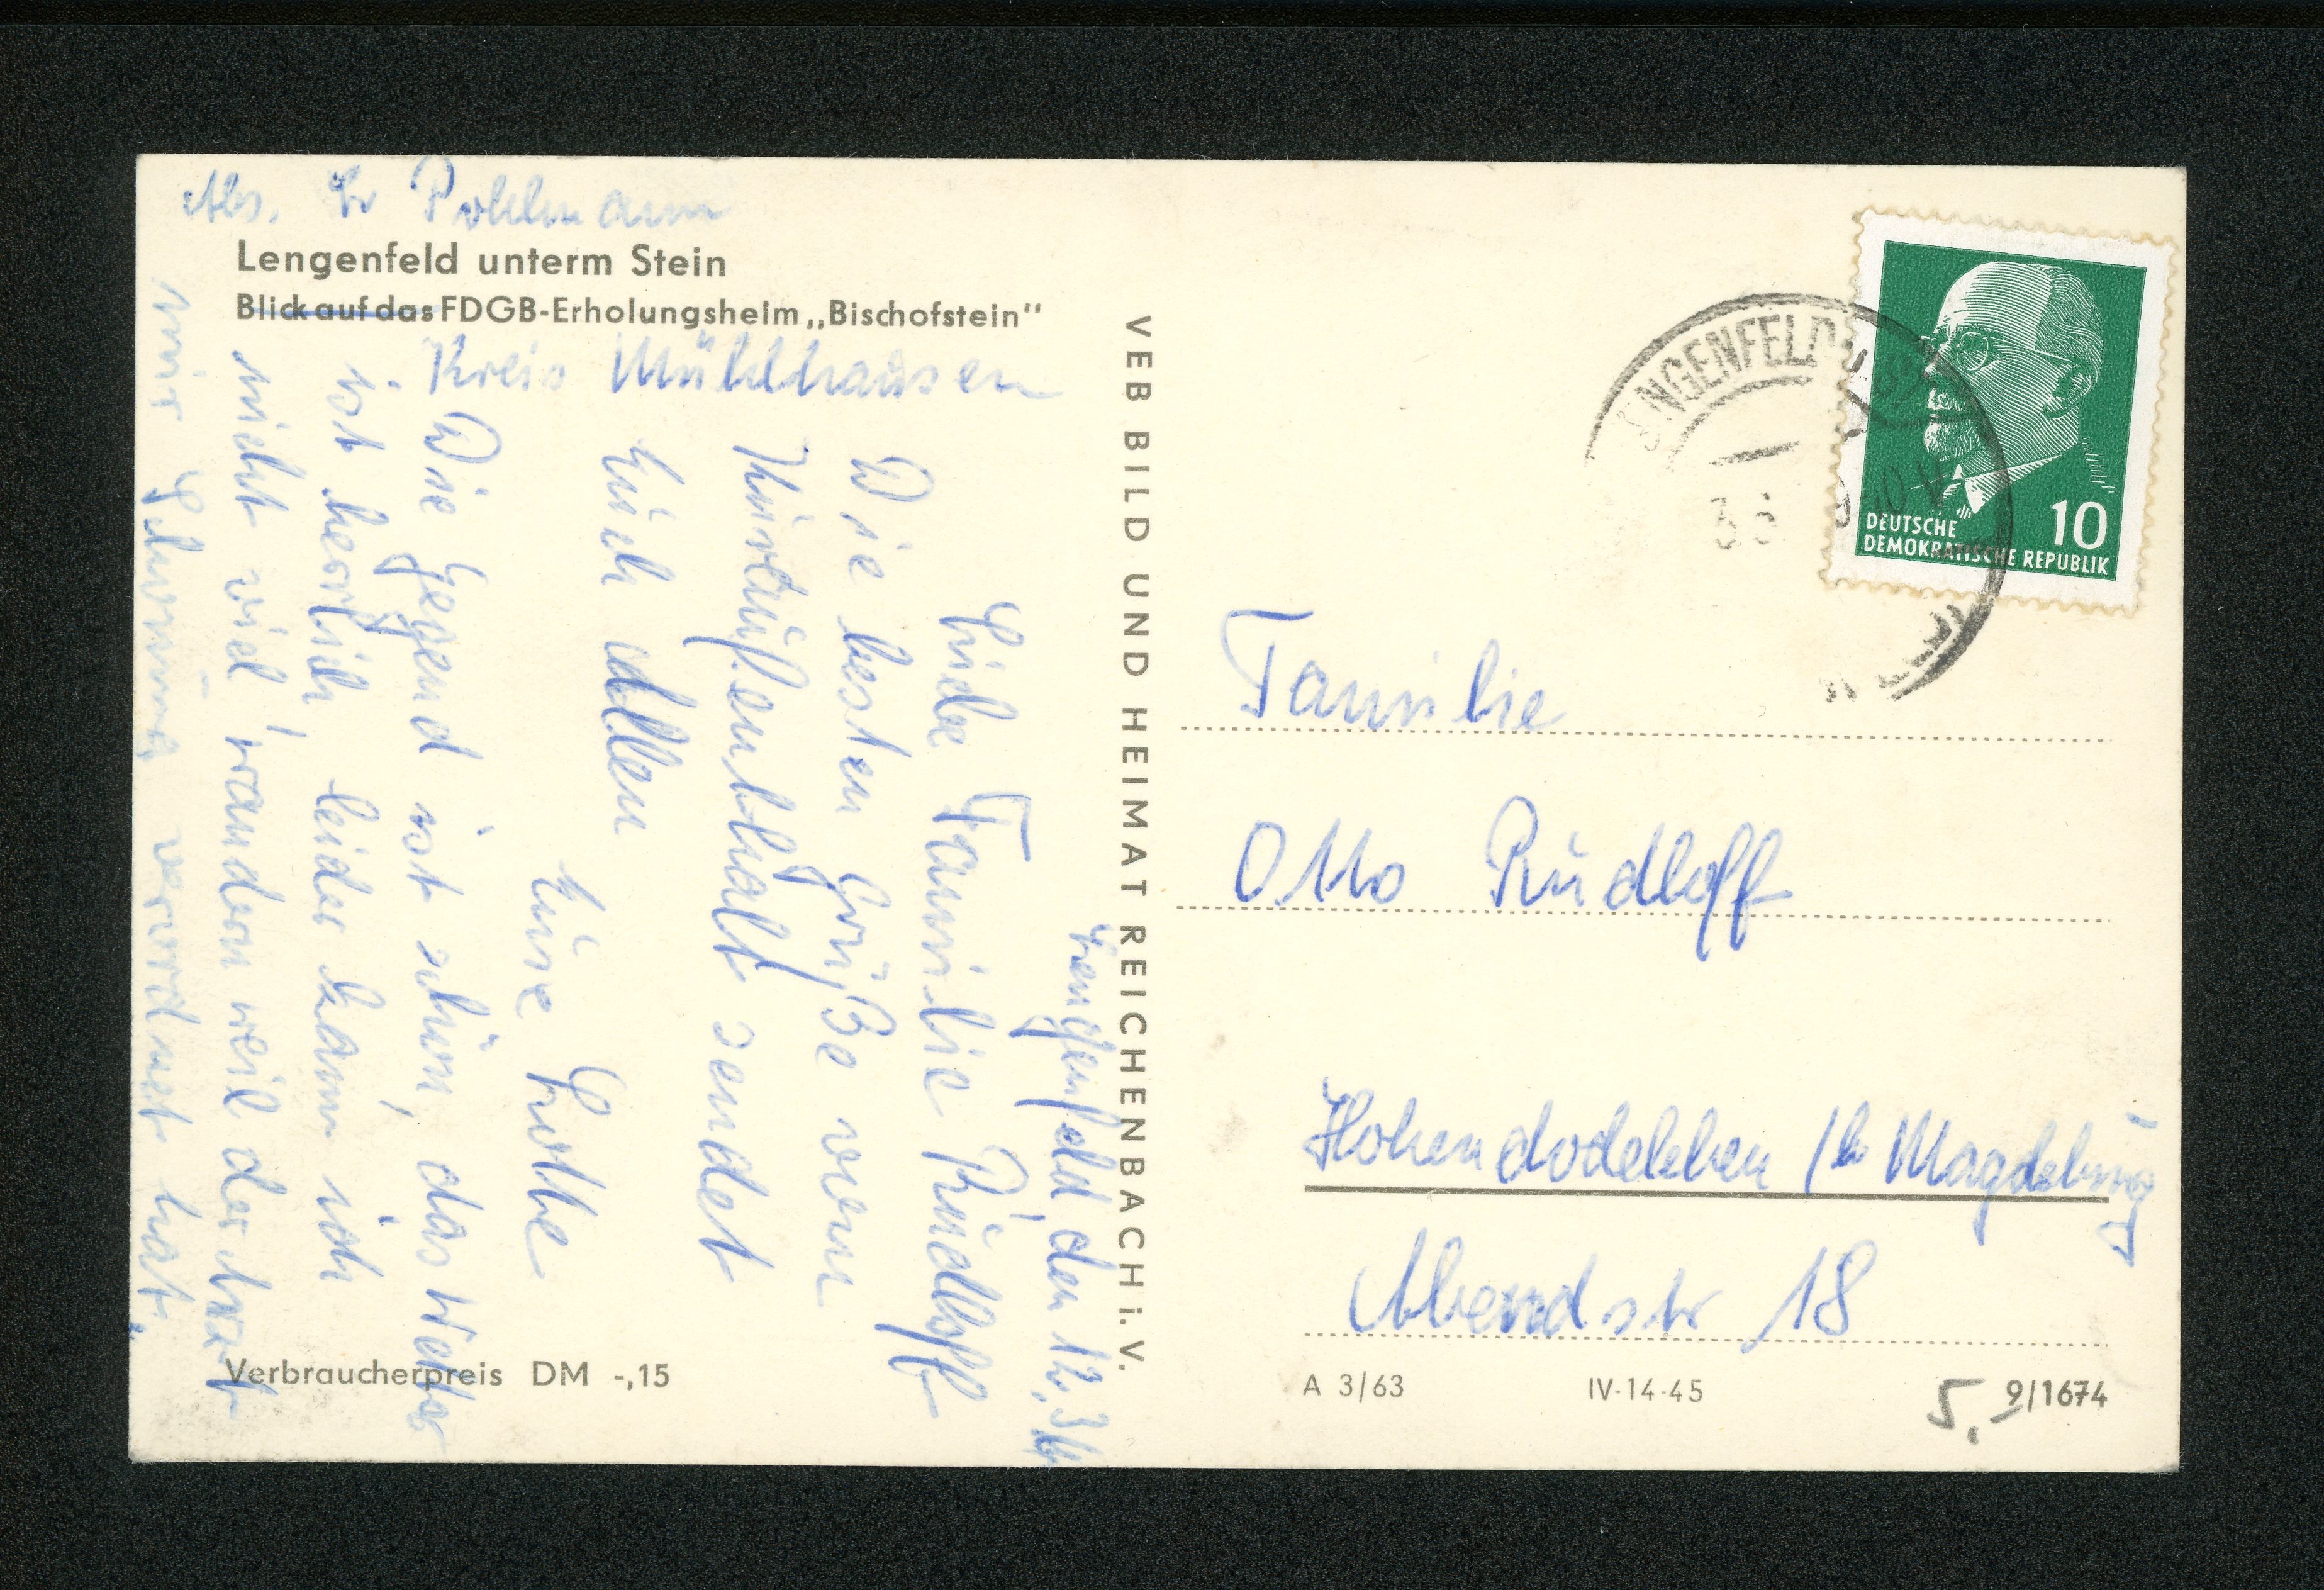 Abs. Pohlmann
Lengenfeld unterm Stein
Blick auf das FDGB-Erholungsheim „Bischofstein"
Kreis Mühlhausen
Lengenfeld, den 12. 3.
Liebe Familie Rudloff
Die besten Grüße vom
Kuraufenthalt sendet
Euch allen
Eure Lotte
Die Gegend ist schön, das Wetter
ist herrlich, leider kann ich
nicht viel wandern weil der Arzt
mir Schonung verordnet hat.
Verbraucherpreis DM -,15
VEB BILD UND HEIMAT REICHENBACH i. V.
LENGENFELD
10
DEUTSCHE
DEMOKRATISCHE REPUBLIK
Familie
Otto Rudloff
Hohendodeleben / b Magdeburg
Abendstr 18
A 3/63 IV-14-45 5. 9/1674